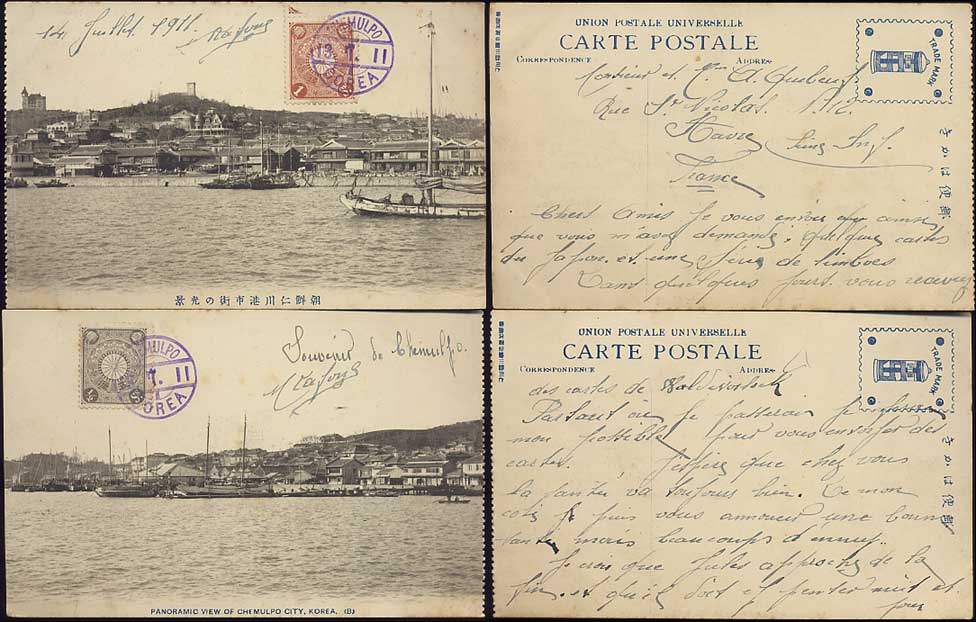 14 Juillet 1911
CHEMULPO
13. 7. 11
KOREA
1
景光の街市港川仁鮮朝
UNION POSTALE UNIVERSELLE
CARTE POSTALE
CORRESPONDENCE ADDRES
TRADE MARK
Monsieur et Mme A.
Rue St Nicolas
Havre
Seine Inf.
France
Chers Amis Je vous envoie ainsi
que vous m'avez demandé. quelques cartes
du Japon et une Série de timbres
Dans quelques jours vous recevrez
きかは便郵
MULPO
7. 11
KOREA
Souvenir de Chemulpo.
PANORAMIC VIEW OF CHEMULPO CITY, KOREA. (B)
UNION POSTALE UNIVERSELLE
CARTE POSTALE
CORRESPONDENCE ADDRES
TRADE MARK
des cartes de
Partout où je passerai je
mon possible pour vous envoyer des
cartes. J'espère que chez vous
la santé va toujours bien. De mon
côté je puis vous annoncer une bonne
santé mais beaucoup d'ennuy.
Je crois que Jules approche de la
fin et qu'il doit y penser nuit et
jour
きかは便郵